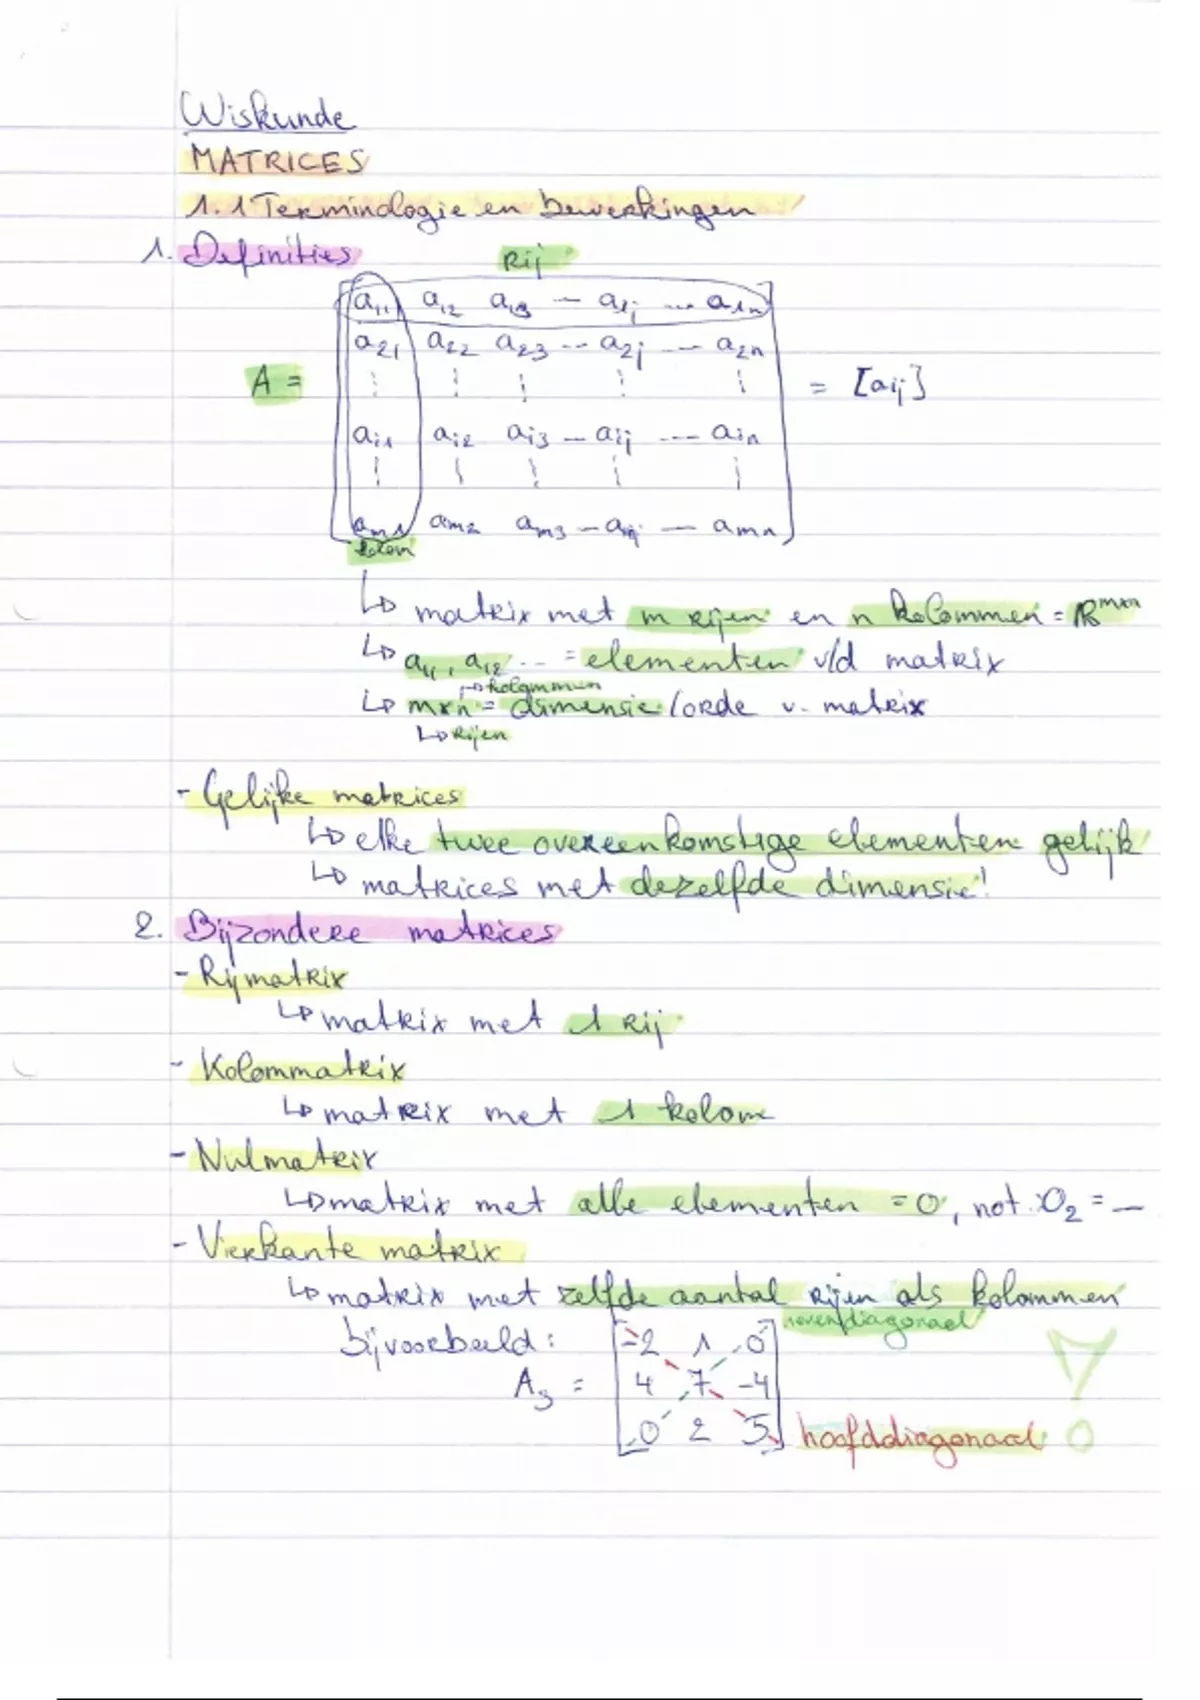 Wiskunde
MATRICES
1.1 Terminologie en bewerkingen
1. Definities
Rij
a₁₁ a₁₂ a₁₃ ... a₁ⱼ ... a₁ₙ
a₂₁ a₂₂ a₂₃ ... a₂ⱼ ... a₂ₙ
A = ⋮ ⋮ ⋮ ⋮ ⋮ = [aᵢⱼ]
aᵢ₁ aᵢ₂ aᵢ₃ ... aᵢⱼ ... aᵢₙ
⋮ ⋮ ⋮ ⋮ ⋮
aₘ₁ aₘ₂ aₘ₃ ... ... aₘₙ
kolom
↳ matrix met m rijen en n kolommen = ℝᵐˣⁿ
↳ a₁₁, a₁₂ ... = elementen v/d matrix
↳ kolommen
↳ m×n = dimensie / orde v. matrix
↳ Rijen
- Gelijke matrices
↳ elke twee overeenkomstige elementen gelijk
↳ matrices met dezelfde dimensie!
2. Bijzondere matrices
- Rijmatrix
↳ matrix met 1 rij
- Kolommatrix
↳ matrix met 1 kolom
- Nulmatrix
↳ matrix met alle elementen = 0, not. O₂ = —
- Vierkante matrix
↳ matrix met zelfde aantal rijen als kolommen
nevendiagonaal
bijvoorbeeld: -2 1 0
A₃ = 4 7 -4
0 2 5 hoofddiagonaal !